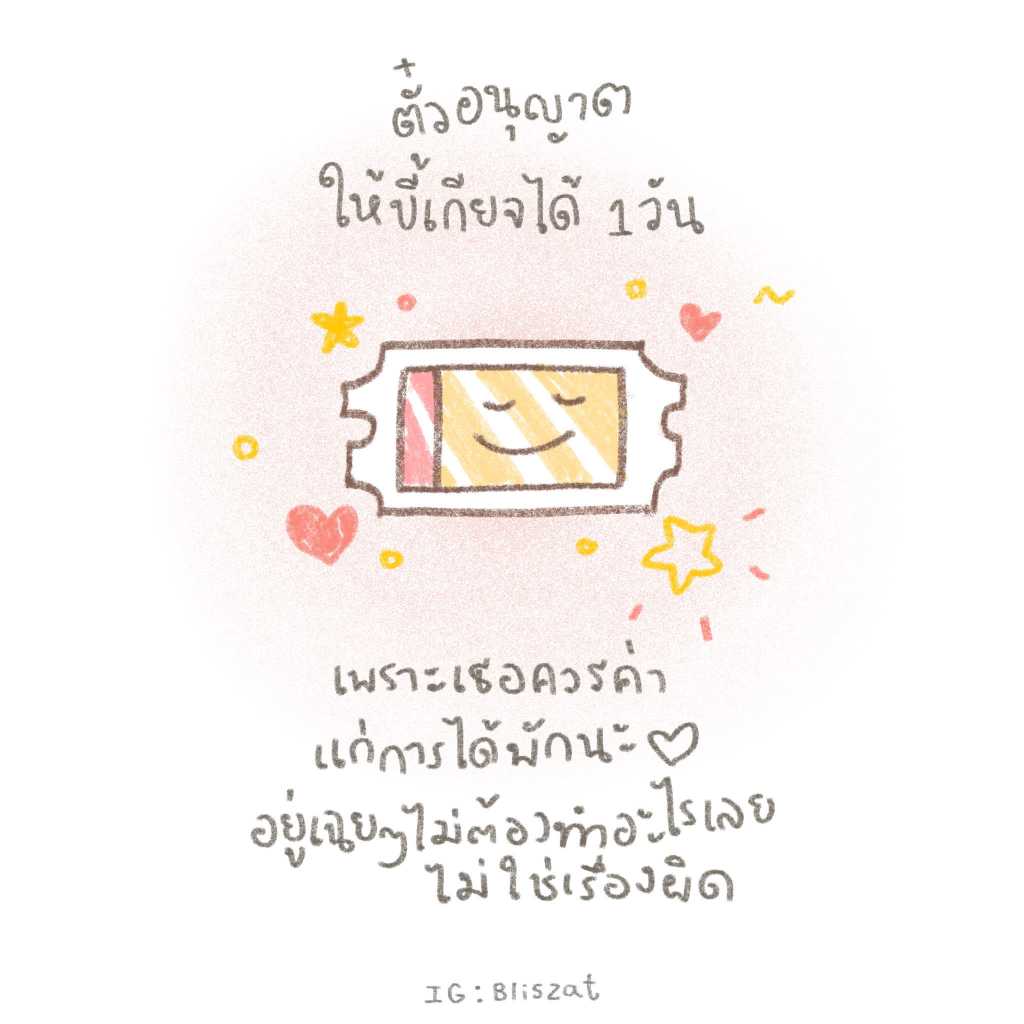 ตั๋วอนุญาต
ให้ขี้เกียจได้ 1 วัน
เพราะเธอควรค่า
แก่การได้พักนะ
อยู่เฉยๆ ไม่ต้องทำอะไรเลย
ไม่ใช่เรื่องผิด
IG : Bliszat